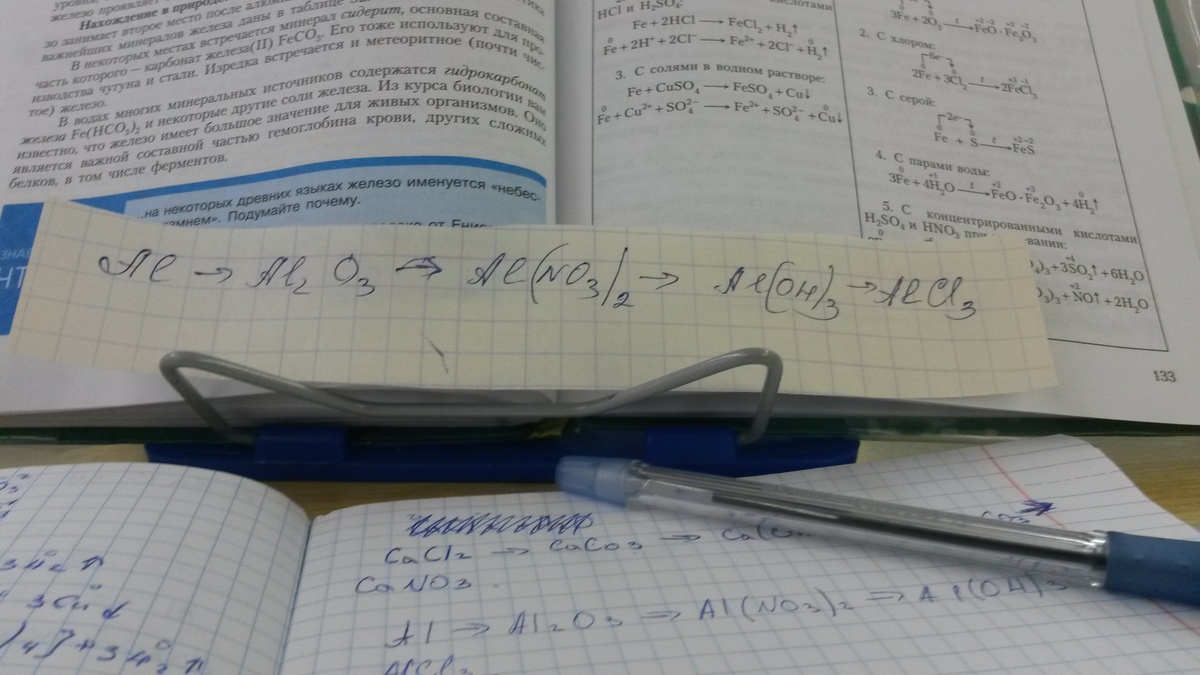 железо проявляет
Нахождение в природе
зо занимает второе место после алюми
важнейших минералов железа даны в таблице
В некоторых местах встречается минерал сидерит, основная составная
часть которого – карбонат железа(II) FeCO₃. Его тоже используют для про-
изводства чугуна и стали. Изредка встречается и метеоритное (почти чис-
тое) железо.
В водах многих минеральных источников содержатся гидрокарбонат
железа Fe(HCO₃)₂ и некоторые другие соли железа. Из курса биологии вам
известно, что железо имеет большое значение для живых организмов. Оно
является важной составной частью гемоглобина крови, других сложных
белков, в том числе ферментов.
на некоторых древних языках железо именуется «небес-
камнем». Подумайте почему.
HCl и H₂SO₄:
Fe + 2HCl → FeCl₂ + H₂↑
Fe + 2H⁺ + 2Cl⁻ → Fe²⁺ + 2Cl⁻ + H₂↑
3. С солями в водном растворе:
Fe + CuSO₄ → FeSO₄ + Cu↓
Fe + Cu²⁺ + SO₄²⁻ → Fe²⁺ + SO₄²⁻ + Cu↓
3Fe + 2O₂ → FeO · Fe₂O₃
2. С хлором:
6e⁻
2Fe + 3Cl₂ → 2FeCl₃
3. С серой:
2e⁻
Fe + S → FeS
4. С парами воды:
3Fe + 4H₂O → FeO · Fe₂O₃ + 4H₂↑
5. С концентрированными кислотами
H₂SO₄ и HNO₃ при
)₃ + 3SO₂↑ + 6H₂O
)₃ + NO↑ + 2H₂O
133
Al → Al₂O₃ → Al(NO₃)₂ → Al(OH)₃ → AlCl₃
CaCl₂ → CaCO₃ → Ca(
CaNO₃
Al → Al₂O₃ → Al(NO₃)₂ → Al(OH)₃
AlCl₃